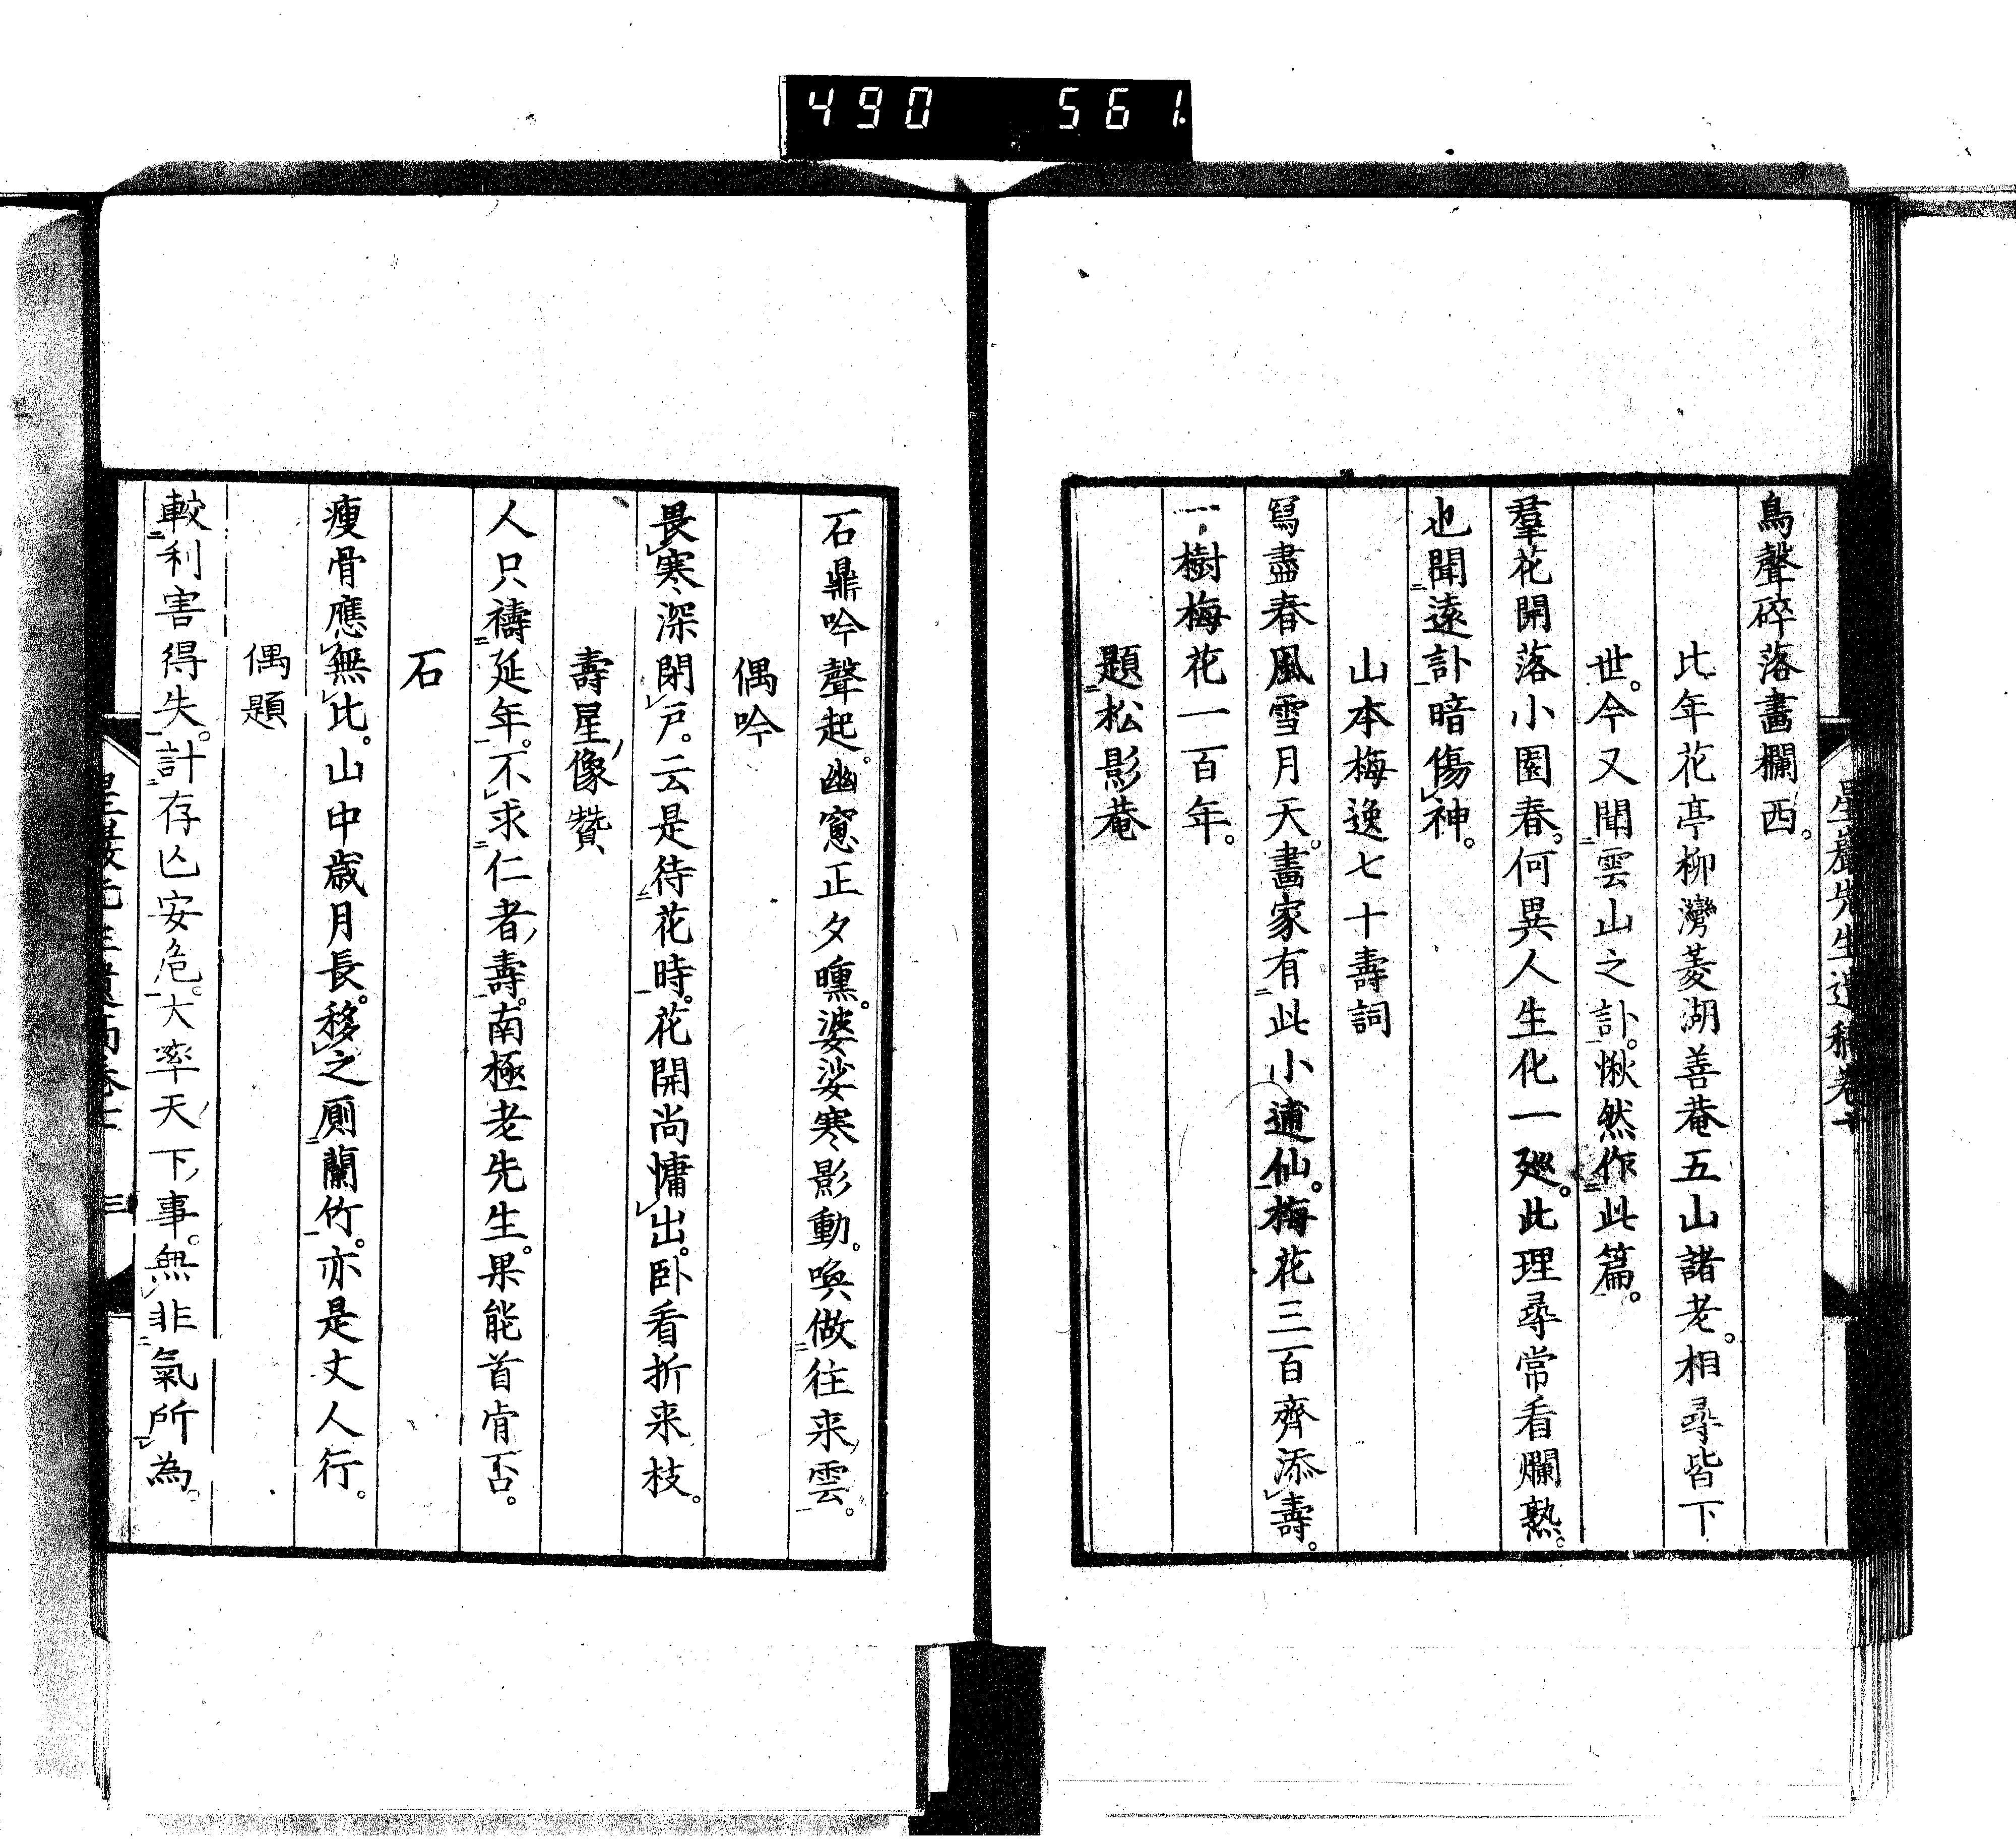 490 561
星巖先生遺稿卷十
鳥聲碎落畵欄西。
比年花亭柳灣菱湖善菴五山諸老。相尋皆下
世。今又聞雲山之訃。愀然作此篇。
羣花開落小園春。何異人生化一廵。此理尋常看爛熟。
也聞遠訃暗傷神。
山本梅逸七十壽詞
寫盡春風雪月天。畫家有此小逋仙。梅花三百齊添壽。
一樹梅花一百年。
題松影菴
石鼎吟聲起。幽窻正夕曛。婆娑寒影動。喚做往来雲。
偶吟
畏寒深閉戸。云是待花時。花開尚慵出。卧看折来枝。
壽星像贊
人只禱延年。不求仁者壽。南極老先生。果能首肯否。
石
瘦骨應無比。山中歳月長。移之厠蘭竹。亦是丈人行。
偶題
較利害得失。計存亾安危。大率天下事。無非氣所為。